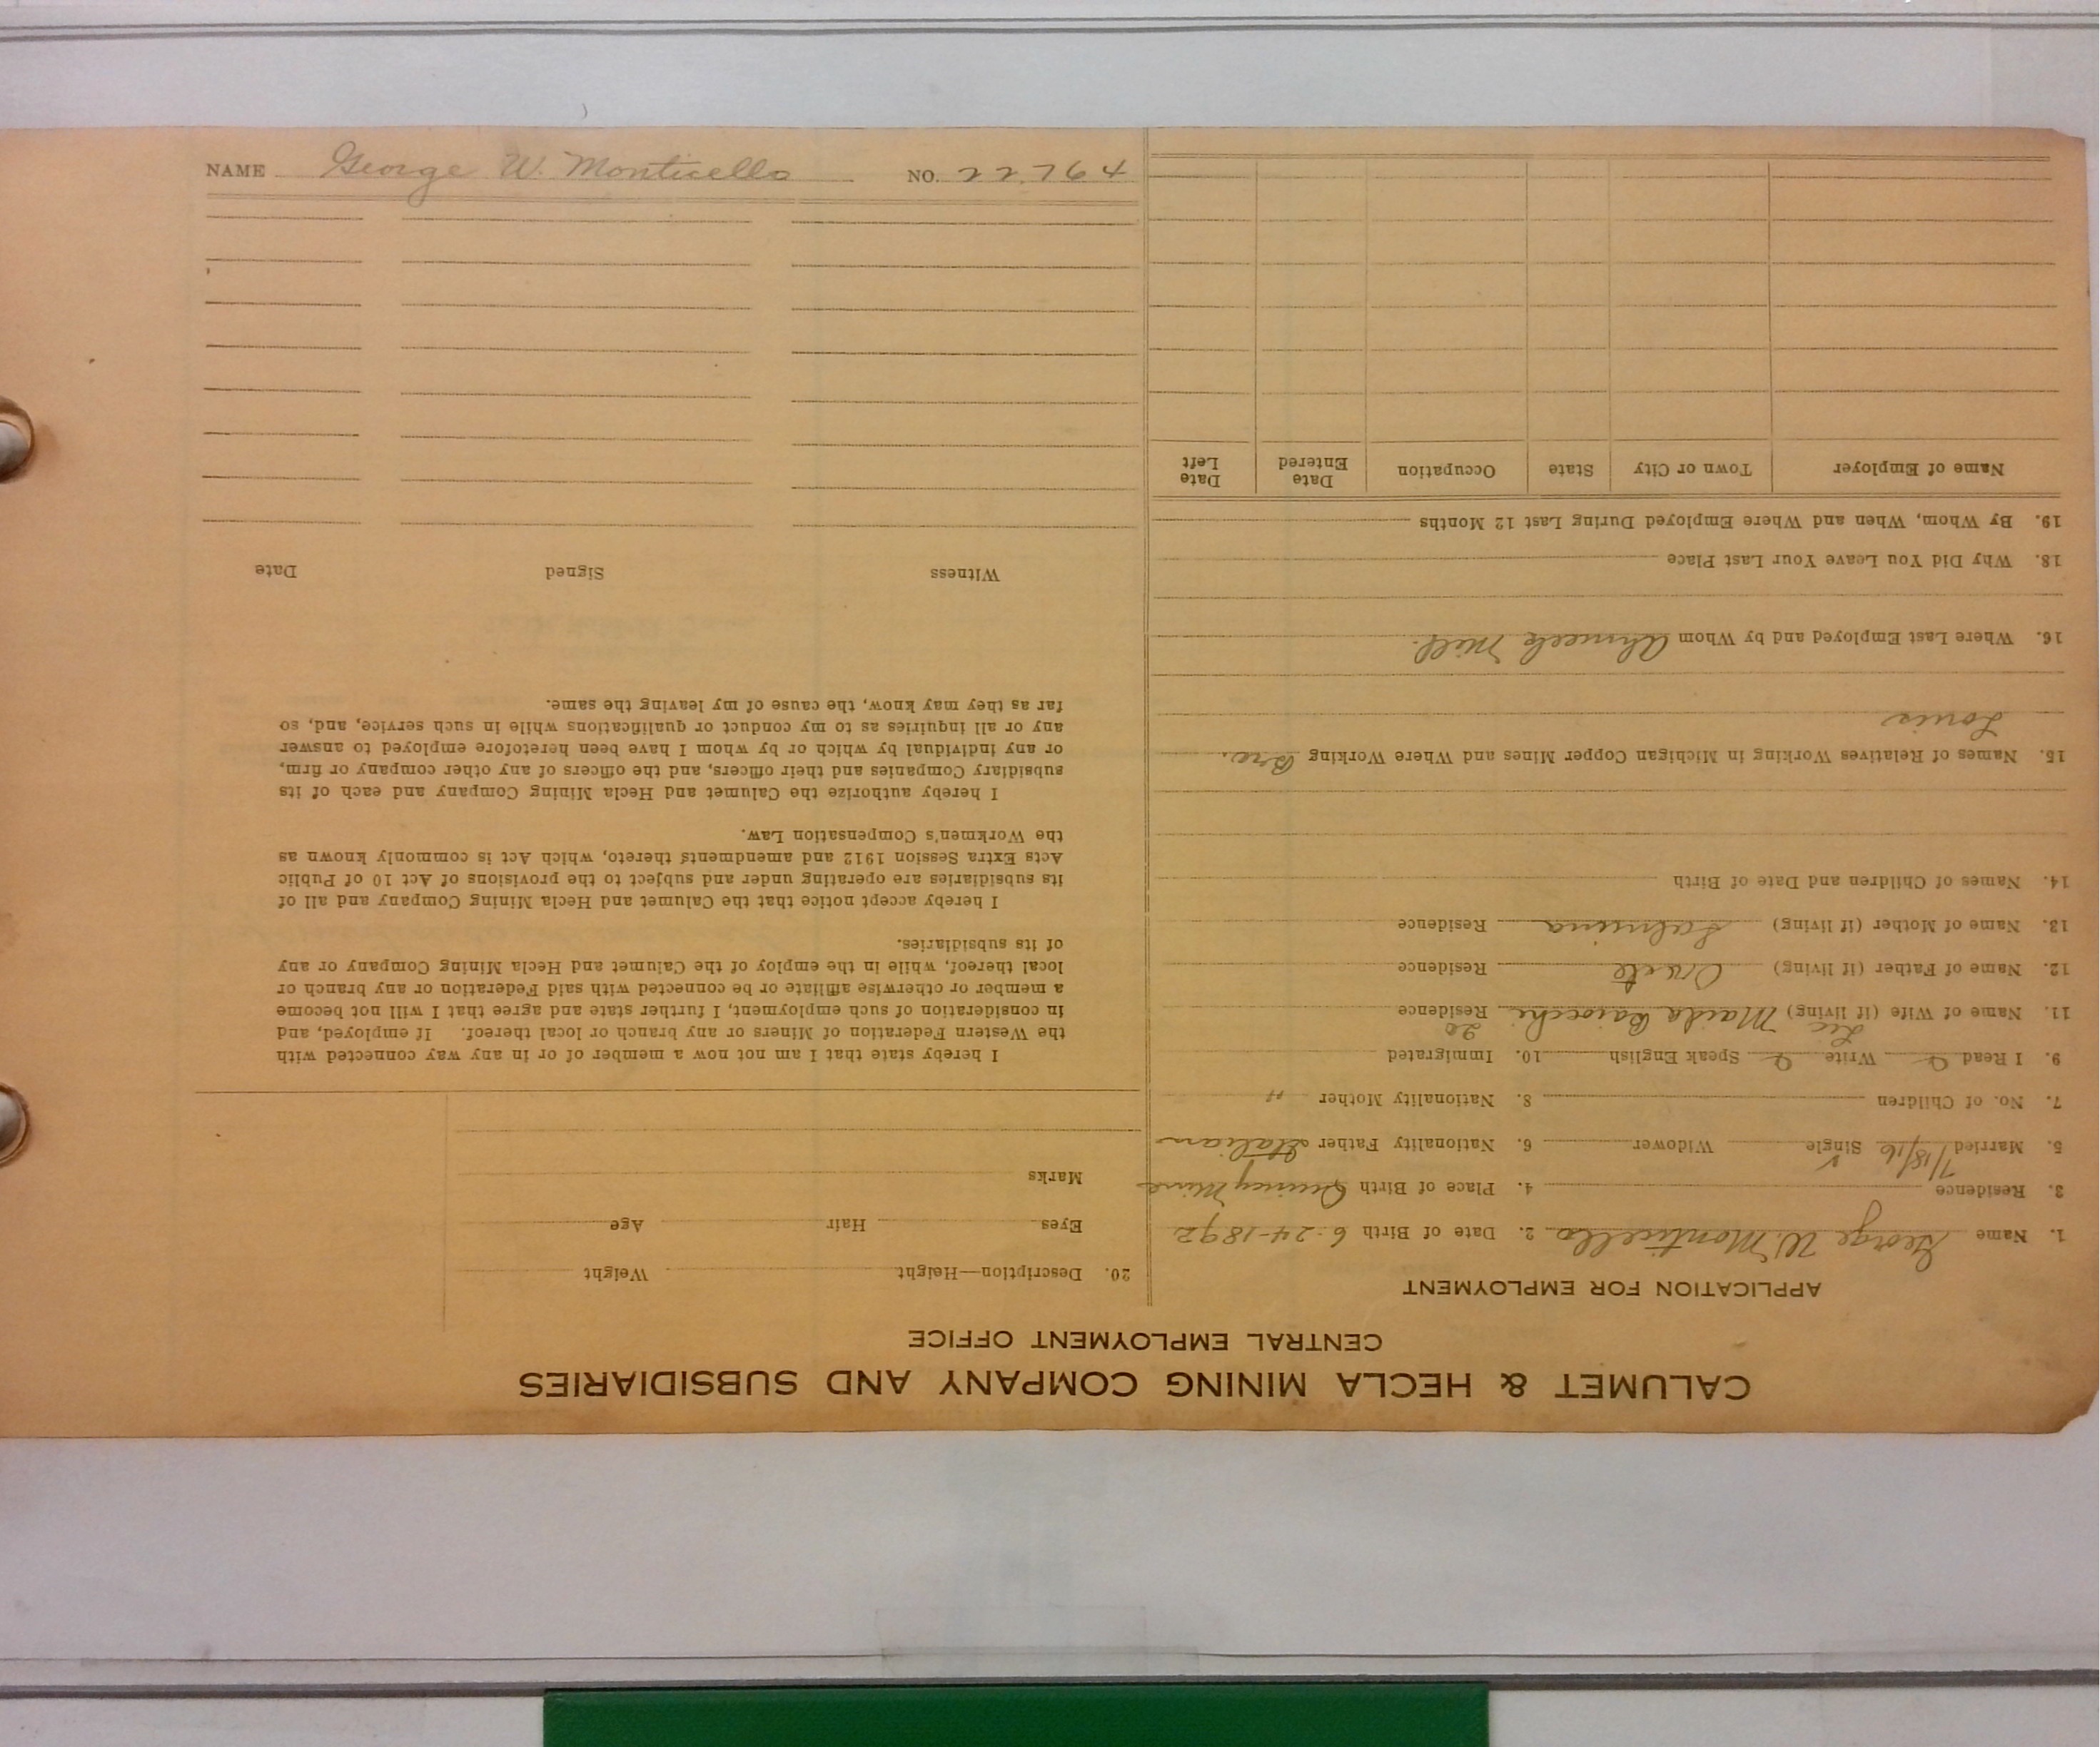 CALUMET & HECLA MINING COMPANY AND SUBSIDIARIES
CENTRAL EMPLOYMENT OFFICE
APPLICATION FOR EMPLOYMENT
1. Name George W. Monticello 2. Date of Birth 6-24-1892
3. Residence 4. Place of Birth Quincy Mine
5. Married 7/18/16 Single ✓ Widower 6. Nationality Father Italian
7. No. of Children 8. Nationality Mother "
9. I Read Write Speak English 10. Immigrated
11. Name of Wife (if living) Maida Residence
12. Name of Father (if living) Residence
13. Name of Mother (if living) Residence
14. Names of Children and Date of Birth
15. Names of Relatives Working in Michigan Copper Mines and Where Working Bro.
Louis
16. Where Last Employed and by Whom Ahmeek Mill.
18. Why Did You Leave Your Last Place
19. By Whom, When and Where Employed During Last 12 Months
Name of Employer Town or City State Occupation Date Entered Date Left
20. Description—Height Weight
Eyes Hair Age
Marks
I hereby state that I am not now a member of or in any way connected with
the Western Federation of Miners or any branch or local thereof. If employed, and
in consideration of such employment, I further state and agree that I will not become
a member or otherwise affiliate or be connected with said Federation or any branch or
local thereof, while in the employ of the Calumet and Hecla Mining Company or any
of its subsidiaries.
I hereby accept notice that the Calumet and Hecla Mining Company and all of
its subsidiaries are operating under and subject to the provisions of Act 10 of Public
Acts Extra Session 1912 and amendments thereto, which Act is commonly known as
the Workmen's Compensation Law.
I hereby authorize the Calumet and Hecla Mining Company and each of its
subsidiary Companies and their officers, and the officers of any other company or firm,
or any individual by which or by whom I have been heretofore employed to answer
any or all inquiries as to my conduct or qualifications while in such service, and, so
far as they may know, the cause of my leaving the same.
Witness Signed Date
NAME George W. Monticello NO. 22764